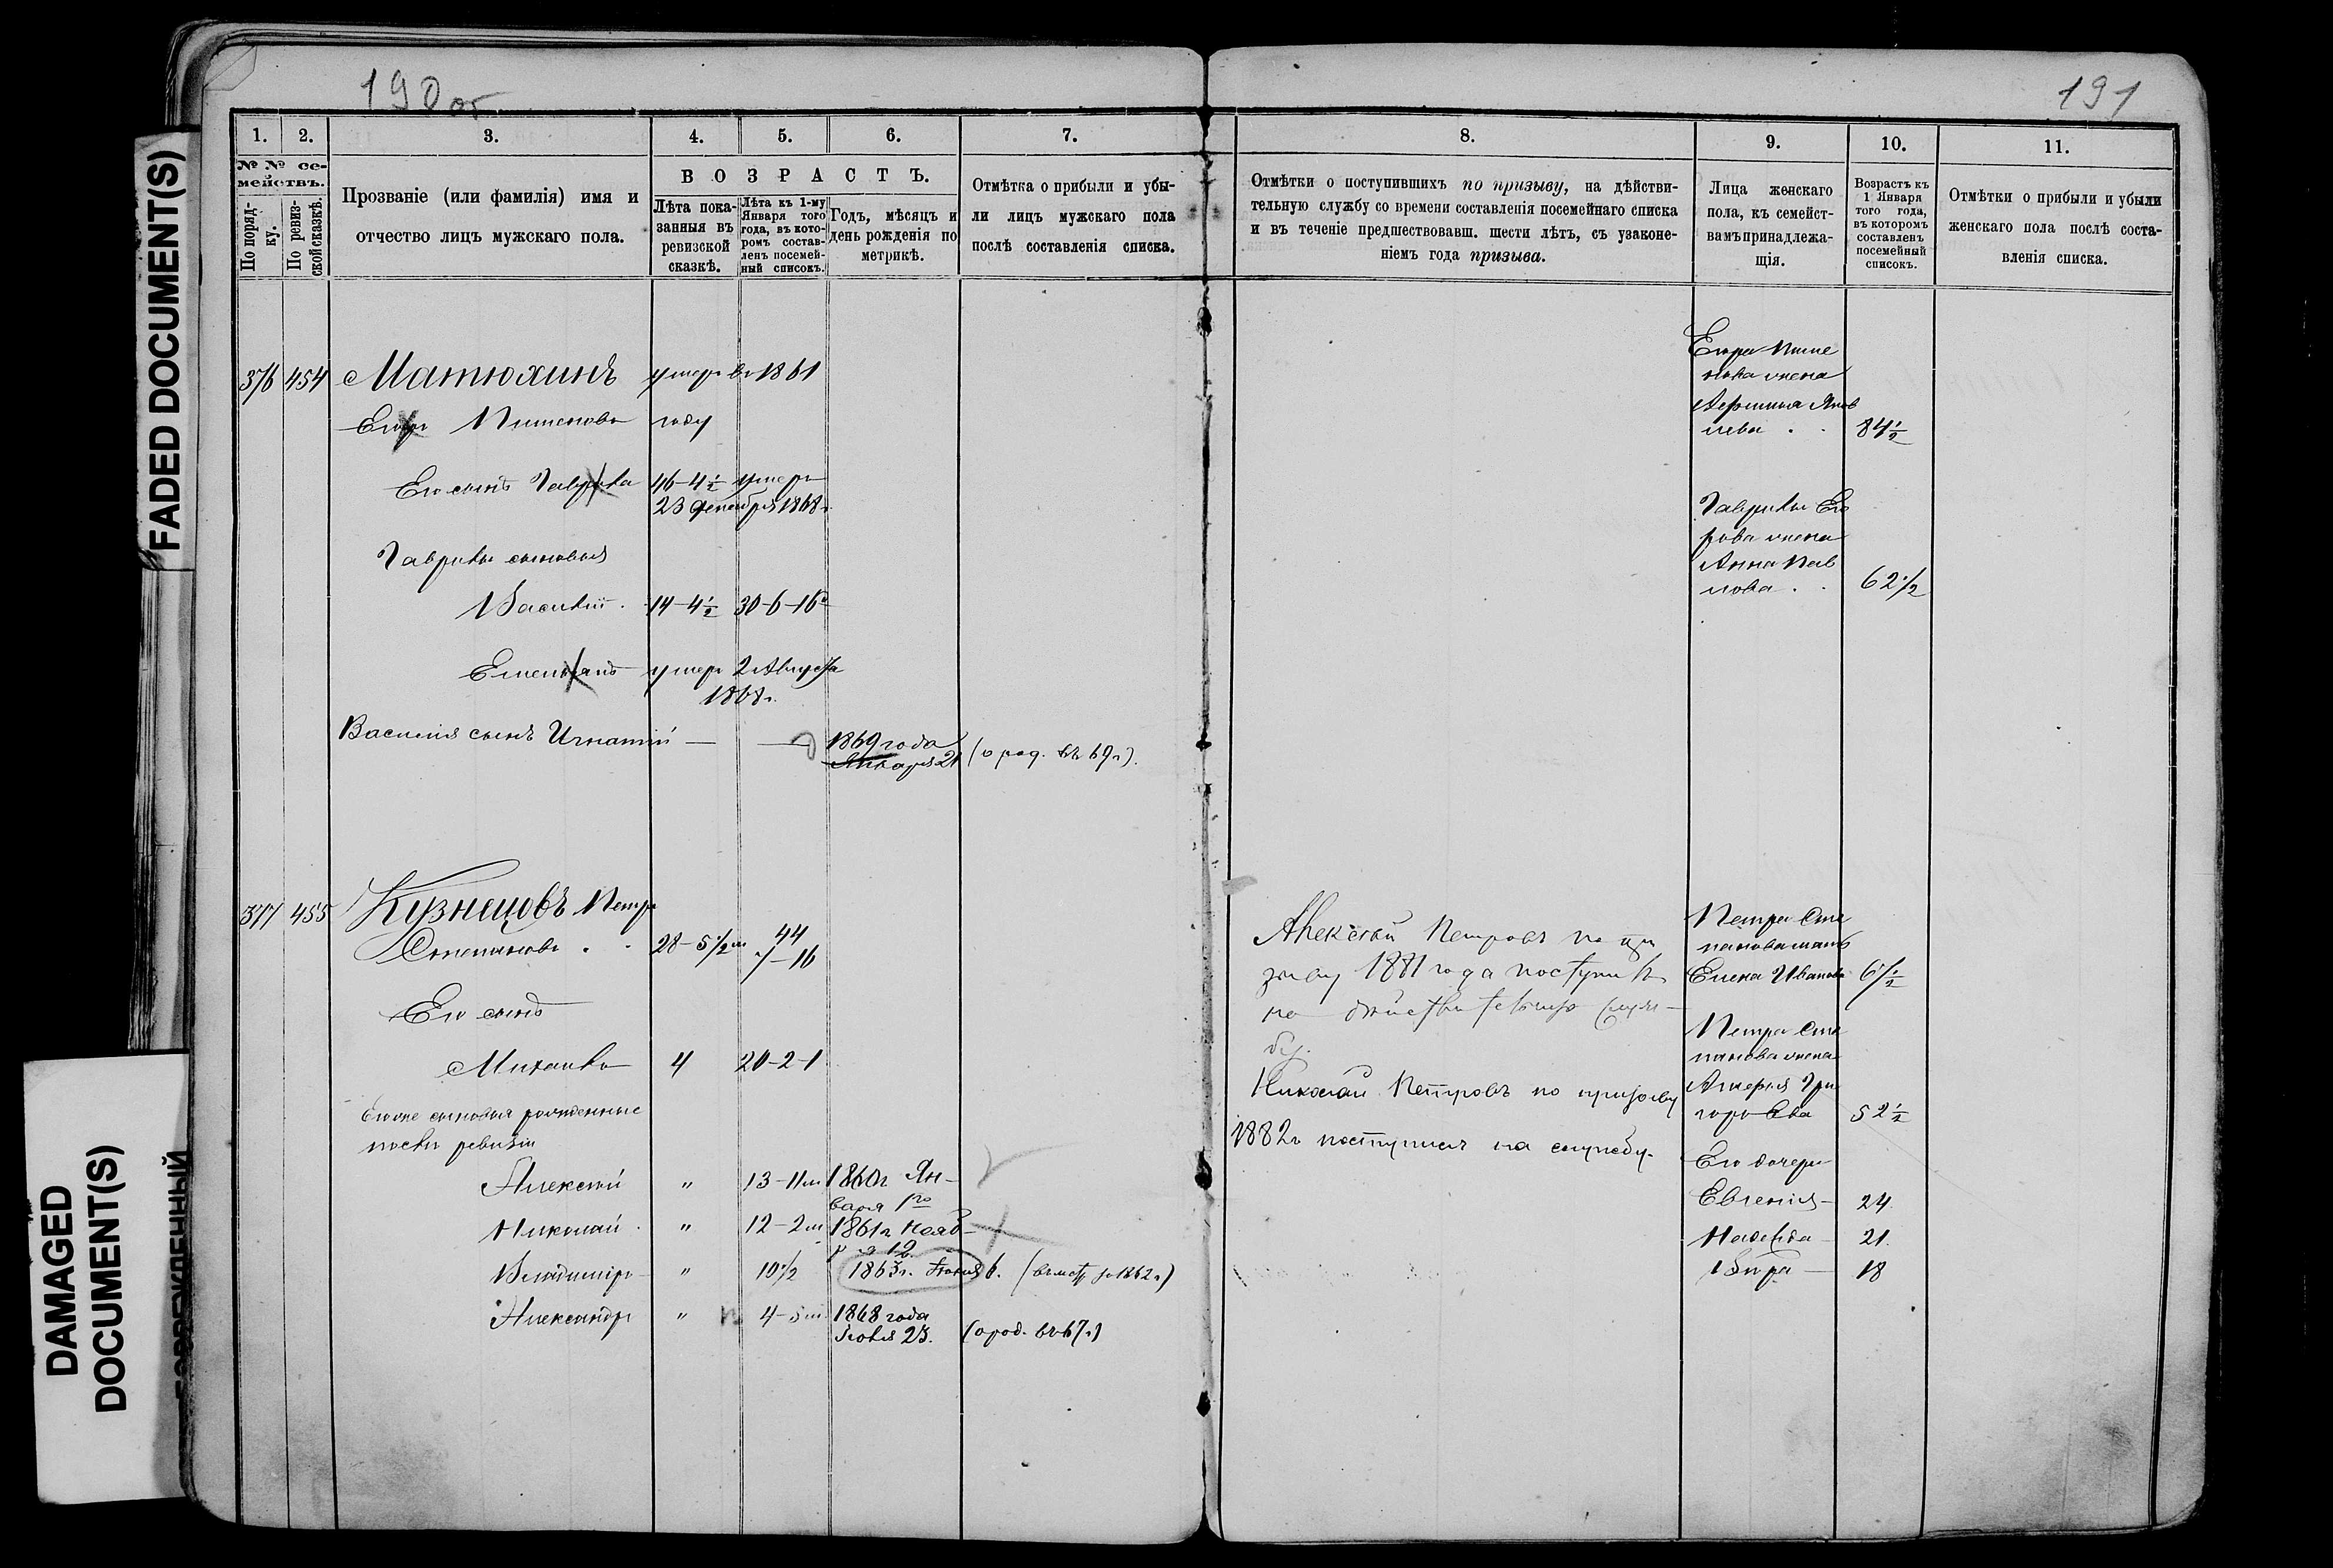 190 об
191
FADED DOCUMENT(S)
DAMAGED
DOCUMENT(S)
1.
2.
3.
4.
5.
6.
7.
№ № се-
мействъ.
По поряд-
ку.
По ревиз-
ской сказкѣ.
Прозваніе (или фамилія) имя и
отчество лицъ мужскаго пола.
ВОЗРАСТЪ.
Лѣта пока-
занныя въ
ревизской
сказкѣ.
Лѣта къ 1-му
Января того
года, въ кото-
ромъ состав-
ленъ посемей-
ный списокъ.
Годъ, мѣсяцъ и
день рожденія по
метрикѣ.
Отмѣтка о прибыли и убы-
ли лицъ мужскаго пола
послѣ составленія списка.
376 454 Матюхинъ умеръ въ 1861
Егоръ Пименовъ году
Его сынъ Гаврила 46-4½ умеръ
23 декабря 1868 г.
Гаврилы сыновья
Василій 14-4½ 30-6-16
Емельянъ умеръ 2 Августа
1868 г.
Василія сынъ Игнатій — — 1869 года
Января 21 (о род. въ 69 г).
377 455 Кузнецовъ Петръ
Степановъ . . 28-5½ м 44
7-16
Его сынъ
Михаилъ 4 20-2-1
Его же сыновья рожденные
послѣ ревизіи
Алексѣй " 13-11 м 1860 г Ян-
варя 1го
Николай " 12-2 м 1861 г Нояб-
ря 12
Владиміръ " 10½ 1863 г. Іюня 6.
Александръ " 4-5 м 1868 года
Іюля 23. (о род. въ 67 г)
8.
9.
10.
11.
Отмѣтки о поступившихъ по призыву, на дѣйстви-
тельную службу со времени составленія посемейнаго списка
и въ теченіе предшествовавш. шести лѣтъ, съ узаконе-
ніемъ года призыва.
Лица женскаго
пола, къ семейст-
вамъ принадлежа-
щія.
Возрастъ къ
1 Января
того года,
въ которомъ
составленъ
посемейный
списокъ.
Отмѣтки о прибыли и убыли
женскаго пола послѣ соста-
вленія списка.
Егора Пиме
нова жена
Яков
лева . . 84½
Гаврилы Его
рова жена
Анна Пав
лова . . 62½
Алексѣй Петровъ по при
зыву 1881 года поступилъ
на дѣйствительную служ-
бу.
Николай Петровъ по призыву
1882 г поступилъ на службу.
Петра Сте
панова мать
Елена Иванова
Петра Сте
панова жена
Гри
горьева 52½
Его дочери
Евгенія 24.
Надежда 21.
Вѣра 18